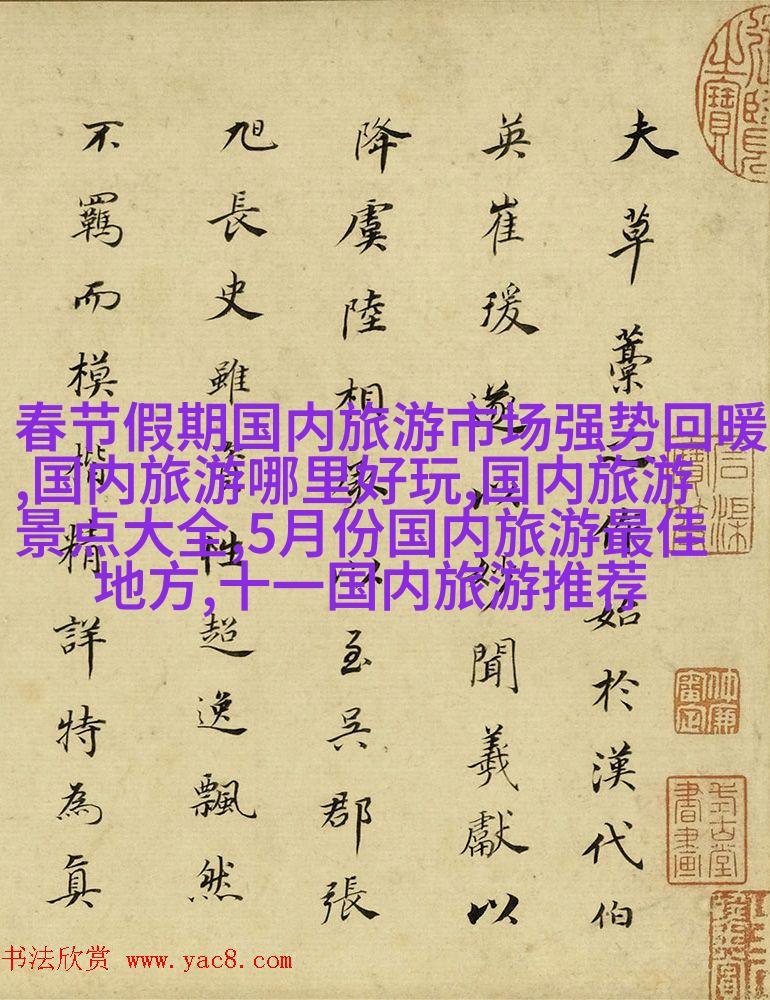 夫草藁之作始於漢代伯
英崔瑗遂以妙聞羲獻以
降虞陸相承以至吳郡張
旭長史雖資性超逸飄然
不羈而模楷精詳特為真
春节假期国内旅游市场强势回暖
,国内旅游哪里好玩,国内旅游
景点大全,5月份国内旅游最佳
地方,十一国内旅游推荐
书法欣赏 www.yac8.com